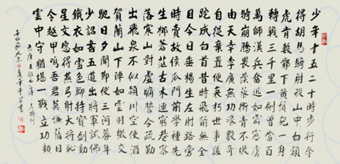 少年十五二十時步行奪
得胡馬騎射殺山中白額
虎肯數鄴下黃鬚兒一身
轉戰三千里一劍曾當百
萬師漢兵奮迅如霹靂虜
騎崩騰畏蒺藜衛青不敗
由天幸李廣無功緣數奇
自從棄置便衰朽世事蹉
跎成白首昔時飛箭無全
目今日垂楊生左肘路旁
時賣故侯瓜門前學種先
生柳蒼茫古木連窮巷寥
落寒山對虛牖誓令疏勒
出飛泉不似潁川空使酒
賀蘭山下陣如雲羽檄交
馳日夕聞節使三河募年
少詔書五道出將軍試拂
鐵衣如雪色聊持寶劍動
星文願得燕弓射大將恥
令越甲鳴吾君莫嫌舊日
雲中守猶堪一戰立功勳